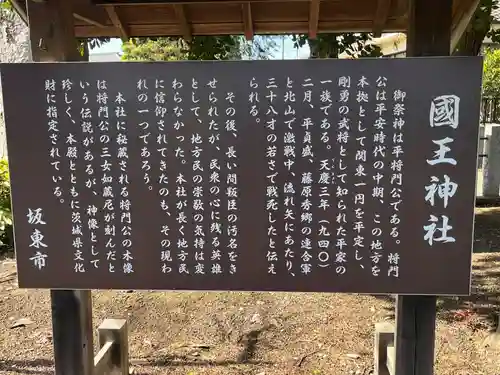 國王神社
御祭神は平将門公である。将門
公は平安時代の中期、この地方を
本拠として関東一円を平定し、
剛勇の武将として知られた平家の
一族である。天慶三年（九四〇）
二月、平貞盛、藤原秀郷の連合軍
と北山で激戦中、流れ矢にあたり、
三十八才の若さで戦死したと伝え
られる。
その後、長い間叛臣の汚名をき
せられたが、民衆の心に残る英雄
として、地方民の崇敬の気持は変
わらなかった。本社が長く地方民
に信仰されてきたのも、その現わ
れの一つであろう。
本社に秘蔵される将門公の木像
は将門公の三女如蔵尼が刻んだと
いう伝説があるが、神像として
珍しく、本殿とともに茨城県文化
財に指定されている。
坂東市